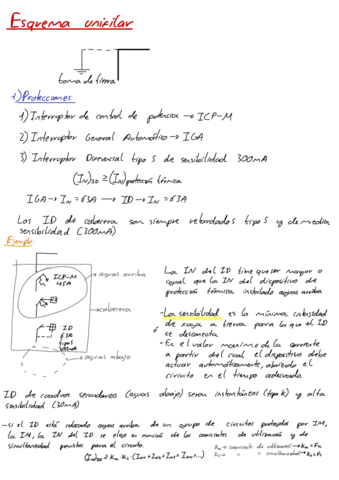 Esquema unifilar
toma de tierra
1) Protecciones
1) Interruptor de control de potencia → ICP-M
2) Interruptor General Automático → IGA
3) Interruptor Diferencial tipo S de sensibilidad 300mA
(IN)ID ≥ (IN)protección térmica
IGA → IN = 63A → ID → IN = 63A
Los ID de cabecera son siempre retardados tipo S y de media
sensibilidad (300mA)
Ejemplo:
aguas arriba
ICP-M
45A
cabecera
ID
63A
tipo S
300mA
aguas abajo
La IN del ID tiene que ser mayor o
igual que la IN del dispositivo de
protección térmica instalado aguas arriba
- La sensibilidad es la mínima intensidad
de fuga a tierra para la que el ID
se desconecta
- Es el valor máximo de la corriente
a partir del cual el dispositivo debe
actuar automáticamente, abriendo el
circuito en el tiempo adecuado
ID de cuadros secundarios (aguas abajo) serán instantáneos (tipo K) y alta
sensibilidad (30mA)
- Si el ID está colocado aguas arriba de un grupo de circuitos protegidos por IM,
la IM, la IN del ID se elige en función de los coeficientes de utilización y de
simultaneidad previstos para el circuito.